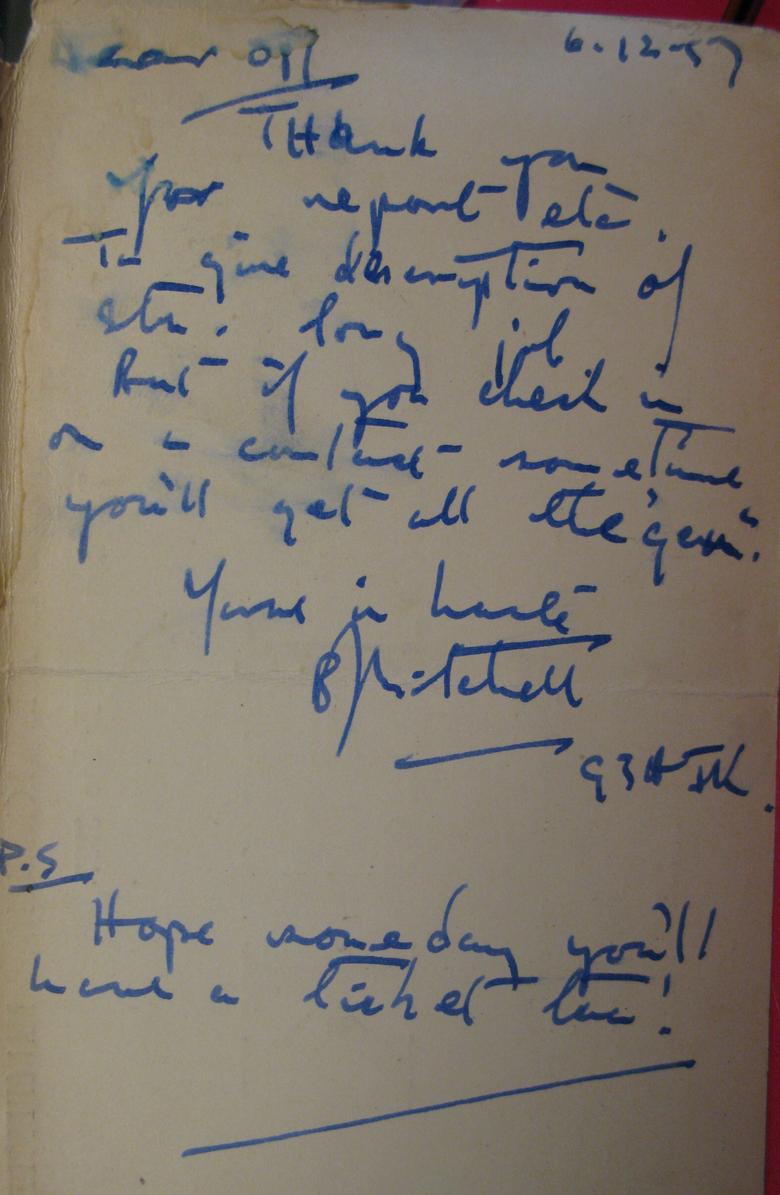 Dear OM 6.12.57
Thank you
for report etc.
To give description of
stn. long job
But if you check in
on a contact sometime
you'll get all the "gen".
Yours in haste
B J Mitchell
G3HJK.
P.S
Hope someday you'll
have a ticket too!